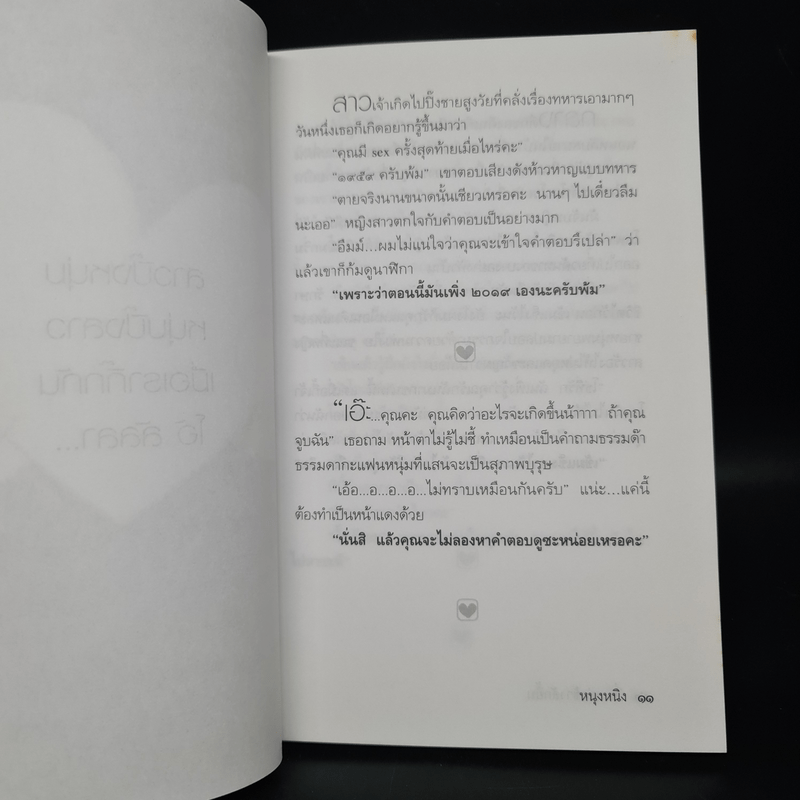 สาวเจ้าเกิดไปปิ๊งชายสูงวัยที่คลั่งเรื่องทหารเอามากๆ
วันหนึ่งเธอก็เกิดอยากรู้ขึ้นมาว่า
"คุณมี sex ครั้งสุดท้ายเมื่อไหร่คะ"
"๑๙๕๙ ครับพ้ม" เขาตอบเสียงดังห้าวหาญแบบทหาร
"ตายจริงนานขนาดนั้นเชียวเหรอคะ นานๆ ไปเดี๋ยวลืม
นะเออ" หญิงสาวตกใจกับคำตอบเป็นอย่างมาก
"อืมม์...ผมไม่แน่ใจว่าคุณจะเข้าใจคำตอบรึเปล่า" ว่า
แล้วเขาก็ก้มดูนาฬิกา
"เพราะว่าตอนนี้มันเพิ่ง ๒๐๑๙ เองนะครับพ้ม"
"เอ๊ะ...คุณคะ คุณคิดว่าอะไรจะเกิดขึ้นน้าาาา ถ้าคุณ
จูบฉัน" เธอถาม หน้าตาไม่รู้ไม่ชี้ ทำเหมือนเป็นคำถามธรรมด๊า
ธรรมดากะแฟนหนุ่มที่แสนจะเป็นสุภาพบุรุษ
"เอ้อ...อ...อ...อ...ไม่ทราบเหมือนกันครับ" แน่ะ...แค่นี้
ต้องทำเป็นหน้าแดงด้วย
"นั่นสิ แล้วคุณจะไม่ลองหาคำตอบดูซะหน่อยเหรอคะ"
หนุงหนิง ๑๑